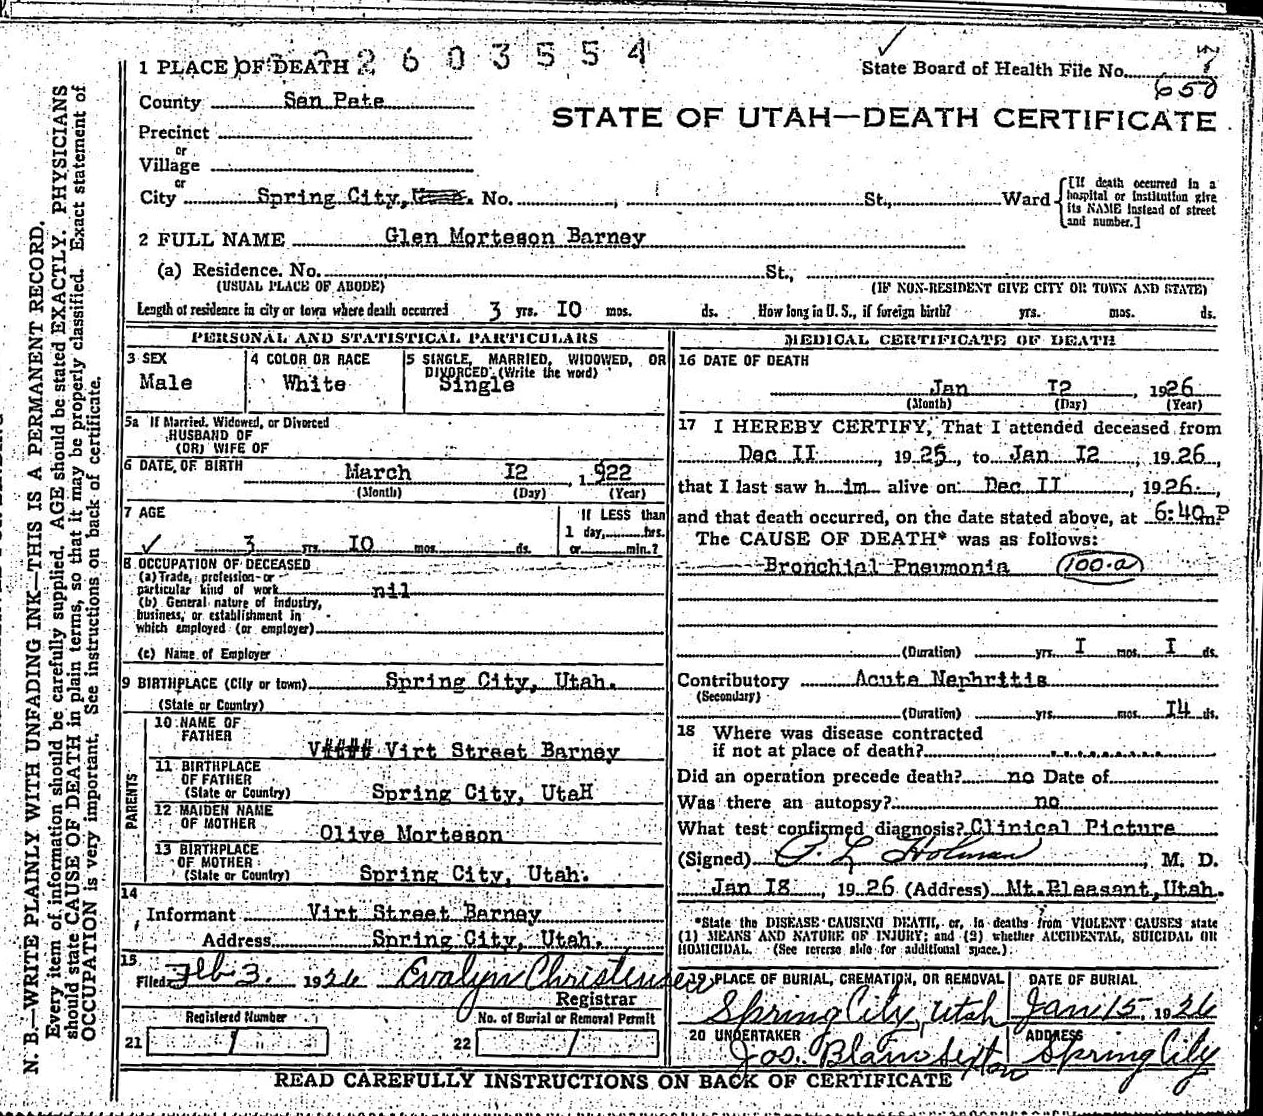 N. B.—WRITE PLAINLY WITH UNFADING INK—THIS IS A PERMANENT RECORD.
Every item of information should be carefully supplied. AGE should be stated EXACTLY. PHYSICIANS
should state CAUSE OF DEATH in plain terms, so that it may be properly classified. Exact statement of
OCCUPATION is very important. See instructions on back of certificate.
2603554
1 PLACE OF DEATH
State Board of Health File No. 7
650
County San Pete
STATE OF UTAH—DEATH CERTIFICATE
Precinct
or
Village
or
City Spring City, No. St., Ward
[If death occurred in a
hospital or institution give
its NAME instead of street
and number.]
2 FULL NAME Glen Morteson Barney
(a) Residence. No. St.,
(USUAL PLACE OF ABODE) (IF NON-RESIDENT GIVE CITY OR TOWN AND STATE)
Length of residence in city or town where death occurred 3 yrs. IO mos. ds. How long in U. S., if foreign birth? yrs. mos. ds.
PERSONAL AND STATISTICAL PARTICULARS
3 SEX
Male
4 COLOR OR RACE
White
5 SINGLE, MARRIED, WIDOWED, OR
DIVORCED (Write the word)
Single
5a If Married, Widowed, or Divorced
HUSBAND OF
(OR) WIFE OF
6 DATE OF BIRTH March I2, 1922
(Month) (Day) (Year)
7 AGE
3 yrs. IO mos. ds.
If LESS than
1 day, hrs.
or min.?
8 OCCUPATION OF DECEASED
(a) Trade, profession or
particular kind of work nil
(b) General nature of industry,
business, or establishment in
which employed (or employer)
(c) Name of Employer
9 BIRTHPLACE (City or town) Spring City, Utah.
(State or Country)
PARENTS
10 NAME OF
FATHER
V#### Virt Street Barney
11 BIRTHPLACE
OF FATHER
(State or Country) Spring City, UtaH
12 MAIDEN NAME
OF MOTHER
Olive Morteson
13 BIRTHPLACE
OF MOTHER
(State or Country) Spring City, Utah.
14
Informant Virt Street Barney
Address Spring City, Utah.
15
Filed Feb 3. 1926 Evalyn Christensen
Registrar
Registered Number
No. of Burial or Removal Permit
21
22
MEDICAL CERTIFICATE OF DEATH
16 DATE OF DEATH
Jan I2, 1926
(Month) (Day) (Year)
17 I HEREBY CERTIFY, That I attended deceased from
Dec II, 1925, to Jan I2, 1926,
that I last saw him alive on Dec II, 1926.,
and that death occurred, on the date stated above, at 6:40 m.P
The CAUSE OF DEATH* was as follows:
Bronchial Pneumonia 100.a
(Duration) yrs. I mos. I ds.
Contributory Acute Nephritis
(Secondary)
(Duration) yrs. mos. I4 ds.
18 Where was disease contracted
if not at place of death?
Did an operation precede death? no Date of
Was there an autopsy? no
What test confirmed diagnosis? Clinical Picture
(Signed) P. L. Holman, M. D.
Jan I8, 1926 (Address) Mt.Pleasant, Utah.
*State the DISEASE CAUSING DEATH, or, in deaths from VIOLENT CAUSES state
(1) MEANS AND NATURE OF INJURY; and (2) whether ACCIDENTAL, SUICIDAL OR
HOMICIDAL. (See reverse side for additional space.)
19 PLACE OF BURIAL, CREMATION, OR REMOVAL
Spring City, Utah
DATE OF BURIAL
Jan 15, 1926
20 UNDERTAKER
Jos. Blain Sexton
ADDRESS
Spring City
READ CAREFULLY INSTRUCTIONS ON BACK OF CERTIFICATE